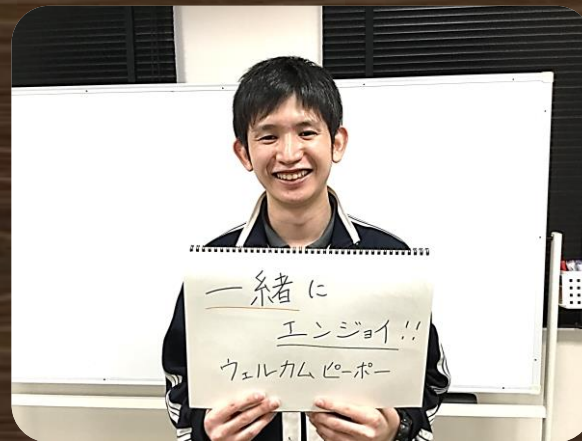 一緒に
エンジョイ!!
ウェルカムピーポー